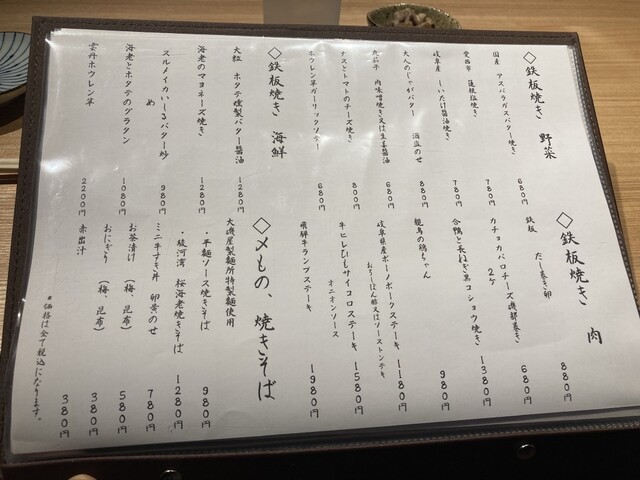 ◇鉄板焼き 野菜
国産 アスパラガスバター焼き 680円
愛西市 蓮根塩焼き 780円
岐阜産 しいたけ醤油焼き 780円
大人のじゃがバター 酒盗のせ 880円
丸茄子 肉味噌焼き又は生姜醤油 680円
ナスとトマトのチーズ焼き 800円
ホウレン草ガーリックソテー 680円
◇鉄板焼き 海鮮
大粒 ホタテ燻製バター醤油 1280円
海老のマヨネーズ焼き 1280円
スルメイカいしるバター炒め 980円
海老とホタテのグラタン 1080円
雲丹ホウレン草 2200円
◇鉄板焼き 肉
鉄板 だし巻き卵 880円
カチョカバロチーズ磯部巻き 2ケ 680円
合鴨と長ねぎ黒コショウ焼き 1380円
郡鳥の鶏ちゃん 980円
岐阜県産ボーノポークステーキ 1180円
おろしぽん酢又はソーストンテキ
牛ヒレひもサイコロステーキ 1580円
オニオンソース
飛騨牛ランプステーキ 1980円
◇〆もの、焼きそば
大磯屋製麺所特製麺使用
・平麺ソース焼きそば 980円
・駿河湾 桜海老焼きそば 1280円
ミニ牛すき丼 卵黄のせ 780円
お茶漬け (梅、昆布) 580円
おにぎり (梅、昆布) 380円
赤出汁 380円
*価格は全て税込になります。